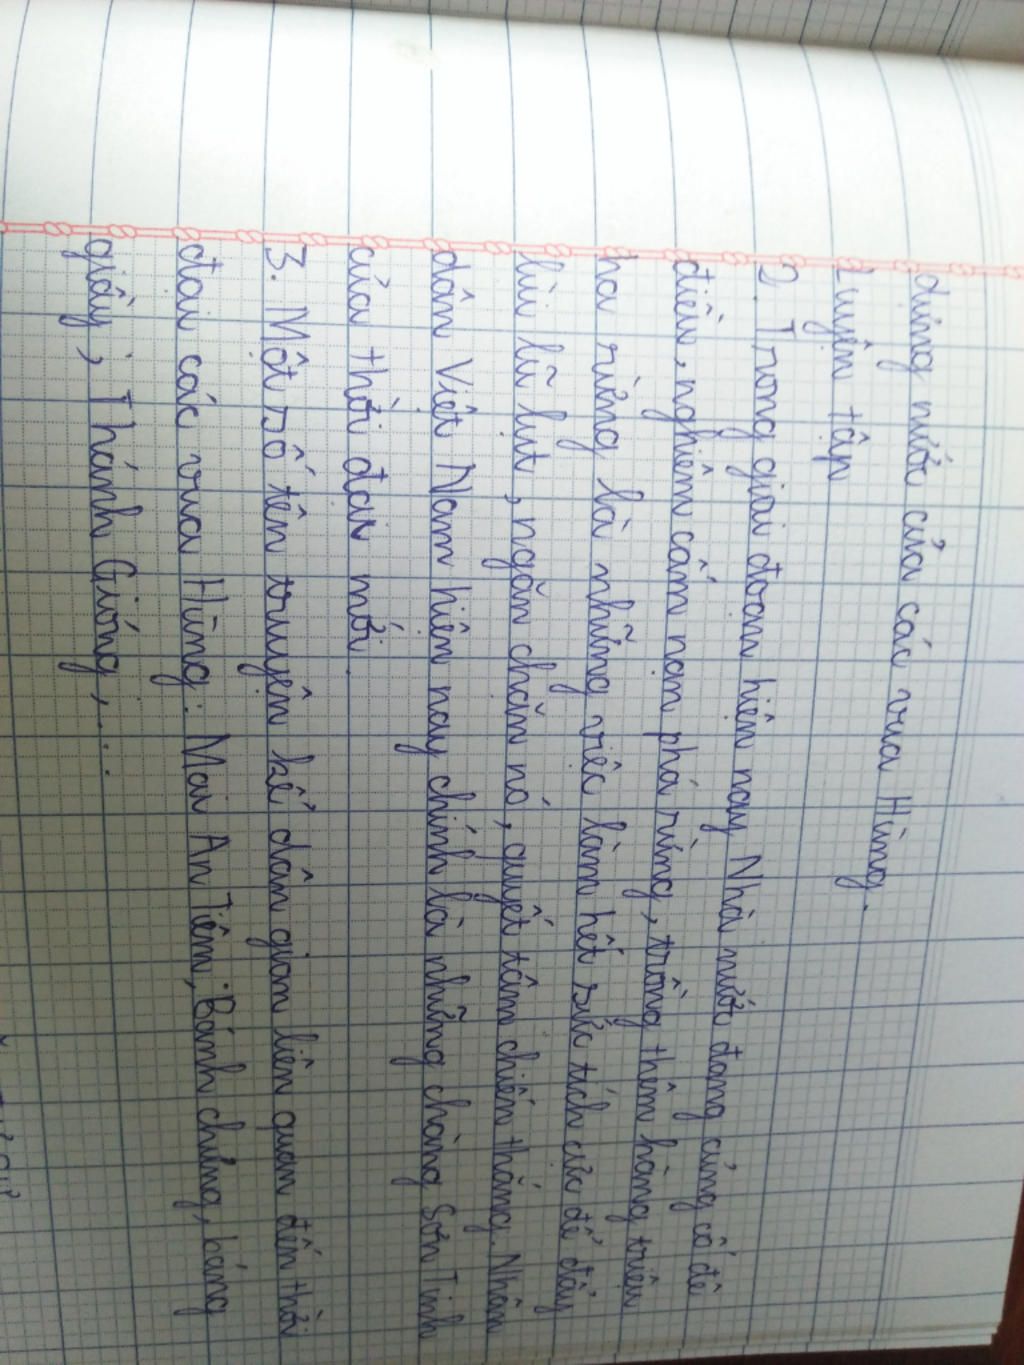 dựng nước của các vua Hùng.
Luyện tập
2. Trong giai đoạn hiện nay Nhà nước đang củng cố đê
điều, nghiêm cấm nạn phá rừng, trồng thêm hàng triệu
ha rừng là những việc làm hết sức tích cực để đẩy
lùi lũ lụt, ngăn chặn nó, quyết tâm chiến thắng. Nhân
dân Việt Nam hiện nay chính là những chàng Sơn Tinh
của thời đại mới.
3. Một số tên truyện kể dân gian liên quan đến thời
đại các vua Hùng: Mai An Tiêm; Bánh chưng, báng
giầy; Thánh Gióng,...